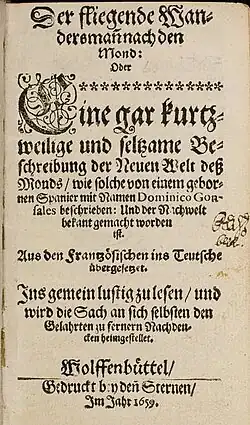 Der fliegende Wan-
dersmañ nach den
Mond:
Oder
***************
Eine gar kurtz-
weilige und seltzame Be-
schreibung der Neuen Welt deß
Monds / wie solche von einem gebor-
nen Spanier mit Namen Dominico Gon-
sales beschrieben: Und der Nachwelt
bekant gemacht worden
ist.
Aus den Frantzösischen ins Teutsche
übergesetzet.
Ins gemein lustig zu lesen / und
wird die Sach an sich selbsten den
Gelahrten zu fernern Nachden-
cken heimgestellet.
Wolffenbüttel /
Gedruckt bey den Sternen /
Im Jahr 1659.